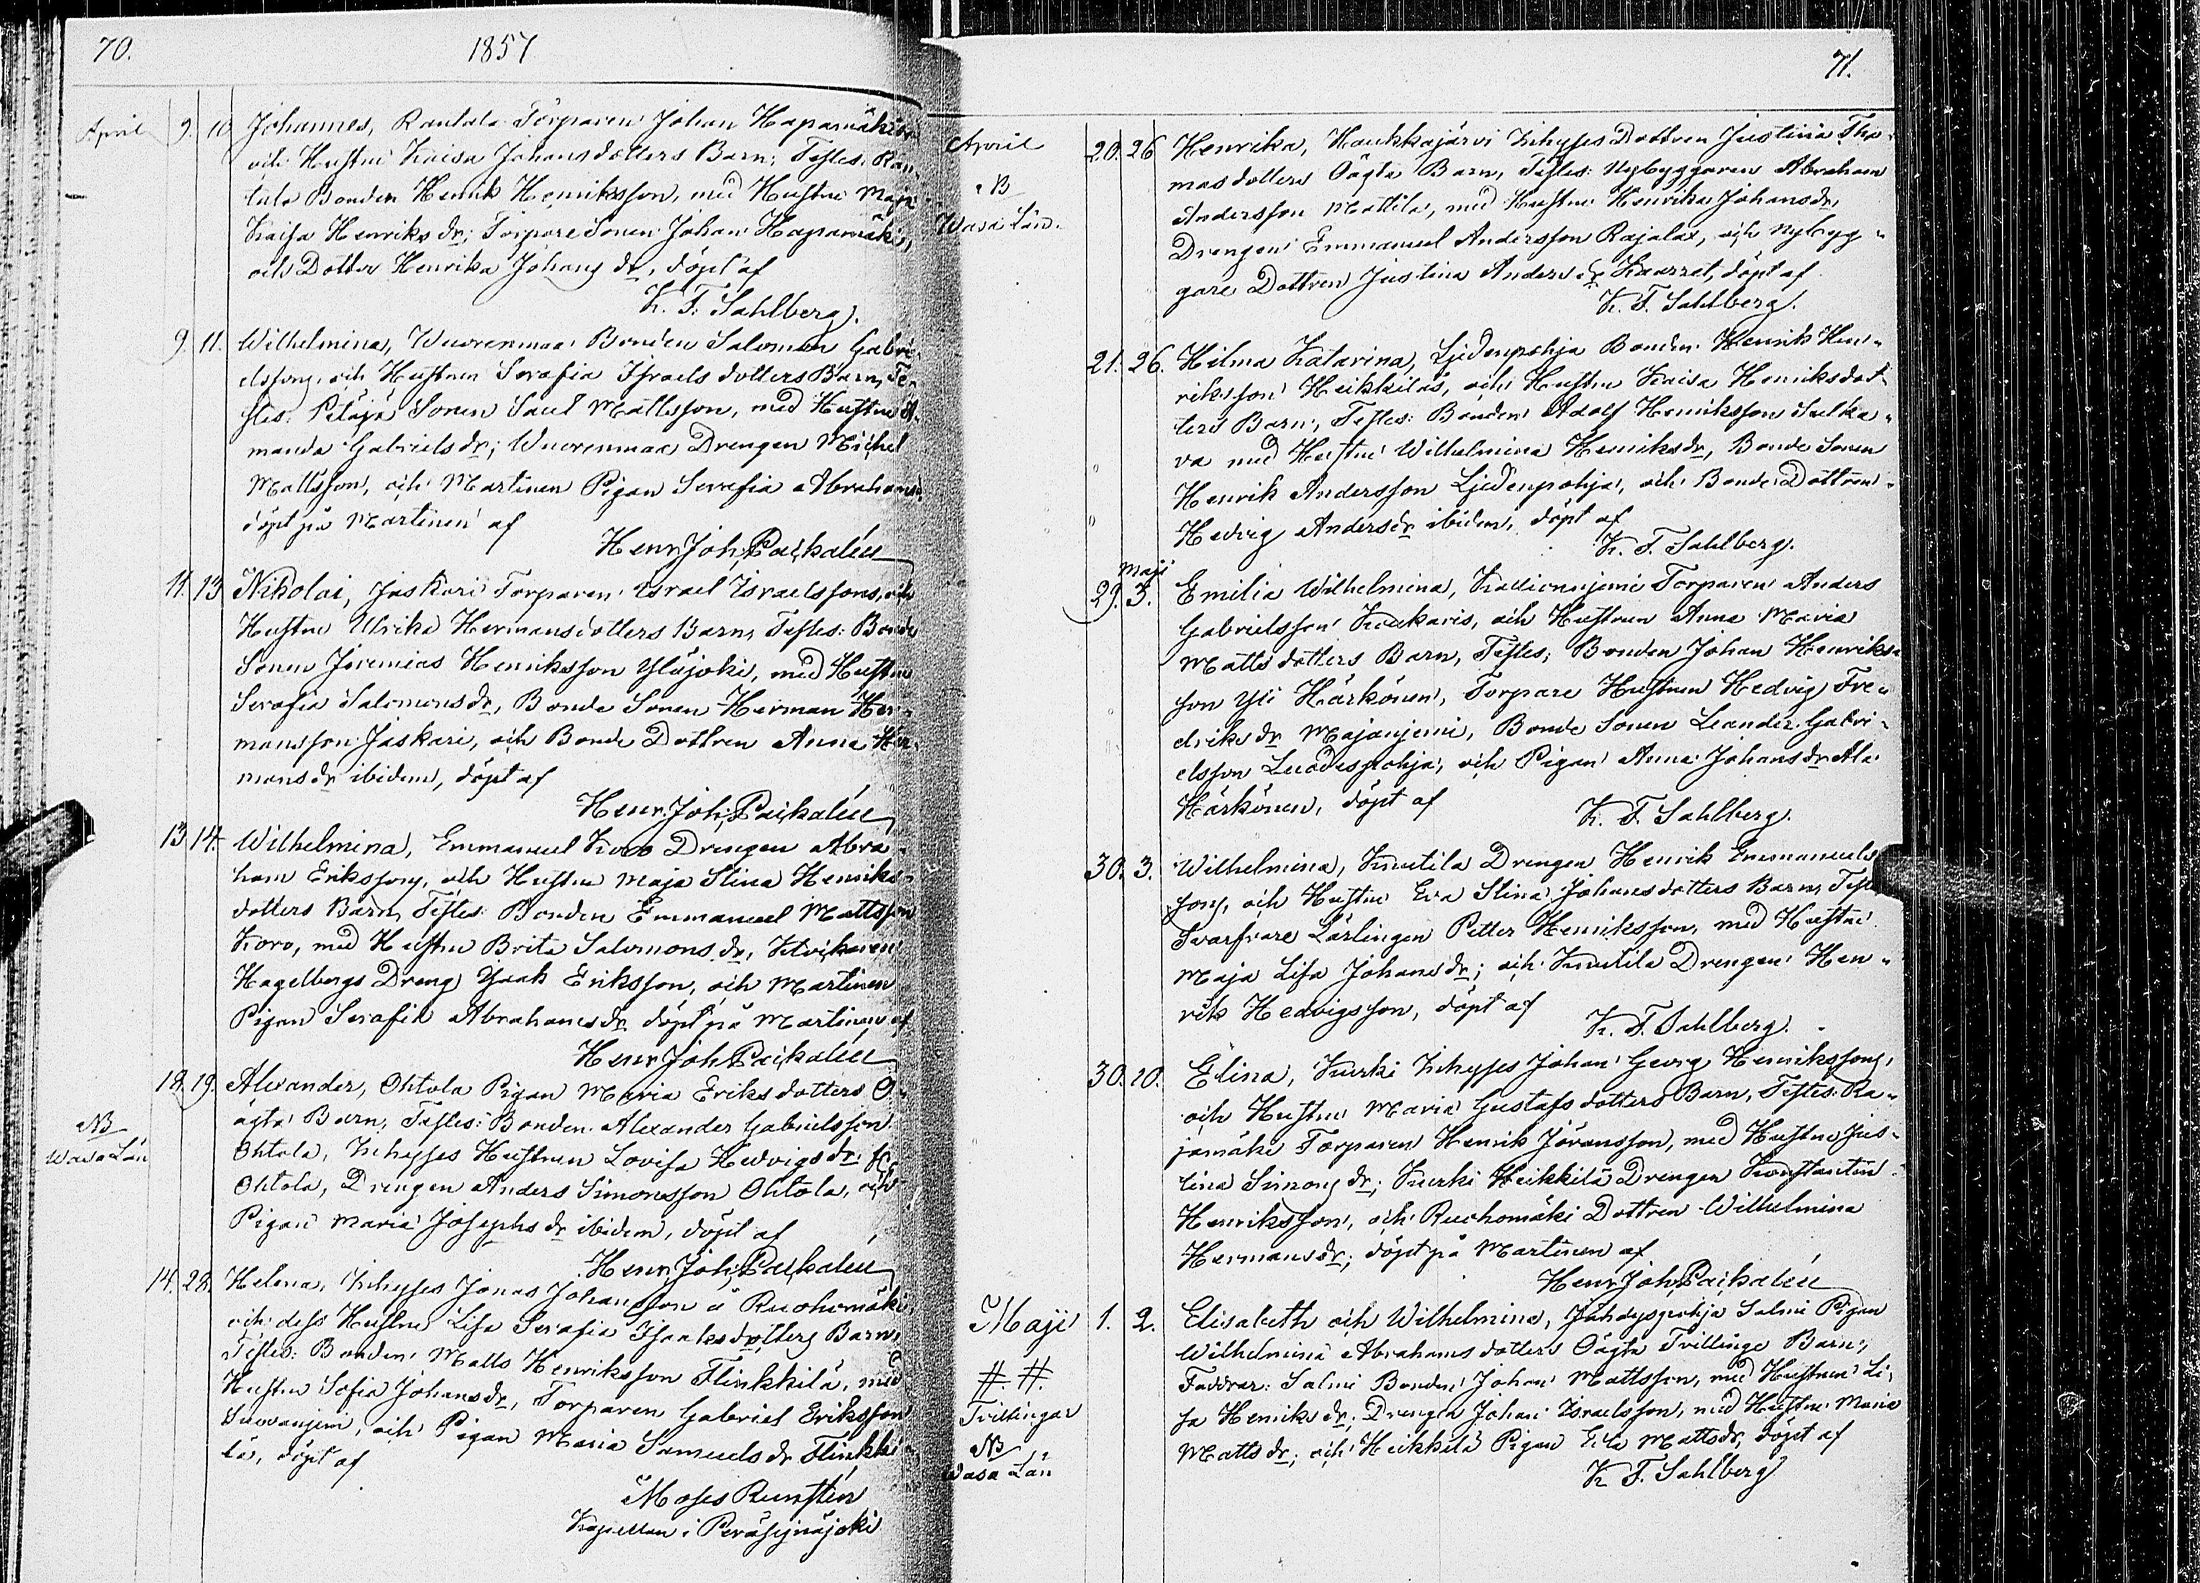 70. 1857
April 9. 10 Johannes, Rantala Torparen Johan Haapamäkis
och Hustru Kaisa Johansdotters Barn; Testes: Ran-
tala Bonden Henrik Henriksson, med Hustru Maja
Kaisa Henriksdr; Torpare Sonen Johan Haapamäki,
och Dotter Henrika Johans dr, döpt af
K. F. Sahlberg.
9. 11. Wilhelmina, Wuorenmaa Bonden Salomon Gabri-
elssons, och Hustrun Serafia Israels dotters Barn, Te-
stes: Sonen Saul Mattsson, med Hustru A-
manda Gabrielsdr; Wuorenmaa Drengen Michel
Mattsson, och Martinen Pigan Serafia Abrahamsdr
döpt på Martinen af
Henr. Joh. Paikalén
11. 13 Nikolai, Jaskari Torparen Israel Israelssons, och
Hustru Ulrika Hermansdotters Barn, Testes: Bonde
Sonen Jeremias Henriksson Ylijoki, med Hustru
Serafia Salomonsdr, Bonde Sonen Herman Her-
mansson Jaskari, och Bonde Dottren Anna Her-
mansdr ibidem, döpt af
Henr. Joh. Paikalén
13 14. Wilhelmina, Emmanuel Koro Drengen Abra-
ham Erikssons, och Hustru Maja Stina Henriks-
dotters Barn, Testes: Bonden Emmanuel Mattsson
Koro, med Hustru Brita Salomons dr,
Hagelbergs Dreng Isak Eriksson, och Martinen
Pigan Serafia Abrahamsdr döpt på Martinen af
Henr. Joh. Paikalén
18. 19. Alexander, Ohtola Pigan Maria Eriks dotters O-
NB ägta Barn, Testes: Bonden Alexander Gabrielsson
Wasa Län Ohtola, Inhyses Hustrun Lovisa Hedvigsdr
Ohtola, Drengen Anders Simonsson Ohtola, och
Pigan Maria Josephs dr ibidem, döpt af
Henr. Joh. Paikalén
14. 28. Helena, Inhyses Jonas Johansson å Ruohomäki
och dess Hustru Lisa Serafia Isaksdotters Barn,
Testes: Bonden Matts Henriksson Flinkkilä, med
Hustru Sofia Johansdr, Torparen Gabriel Eriksson
Luovaniemi, och Pigan Maria Samuelsdr Flinkki-
lä, döpt af
Moses Runstén
Kapellan i Peräseinäjoki
71.
April 20. 26 Henrika, Haukkajärvi Inhyses Dottren Justina Tho-
NB masdotters Oägta Barn, Testes: Nybyggaren Abraham
Wasa Län. Andersson Mattila, med Hustru Henrika Johansdr,
Drengen Emmanuel Andersson Rajalax, och Nybyg-
gare Dottren Justina Andersdr Kaarret, döpt af
K. F. Sahlberg.
21. 26. Hilma Katarina, Liedenpohja Bonden Henrik Hen-
riksson Heikkiläs, och Hustru Kaisa Henriksdot-
ters Barn, Testes: Bonden Adolf Henriksson Sulka-
va med Hustru Wilhelmina Henriksdr, Bonde Sonen
Henrik Andersson Liedenpohja, och Bonde Dottren
Hedvig Andersdr ibidem, döpt af
K. F. Sahlberg.
Maji
29. 3. Emilia Wilhelmina, Kallioniemi Torparen Anders
Gabrielsson Koukaris, och Hustrun Anna Maria
Mattsdotters Barn, Testes; Bonden Johan Henriks-
son Yli Härkönen, Torpare Hustrun Hedvig Fre-
driksdr Majaniemi, Bonde Sonen Leander Gabri-
elsson Luodespohja, och Pigan Anna Johansdr Ala
Härkönen, döpt af
K. F. Sahlberg.
30. 3. Wilhelmina, Knuutila Drengen Henrik Emmanuels
sons, och Hustru Eva Stina Johansdotters Barn, Testes
Svarfvare Lärlingen Petter Henriksson, med Hustru
Maja Lisa Johansdr; och Knuutila Drengen Hen-
rik Hedvigsson, döpt af
K. F. Sahlberg.
30. 10. Elina, Kurki Inhyses Johan Georg Henrikssons,
och Hustru Maria Gustafs dotters Barn, Testes: Ra-
jamäki Torparen Henrik Göransson, med Hustru Jus-
tina Simons dr; Kurki Heikkilä Drengen Konstantin
Henriksson, och Ruohomäki Dottren Wilhelmina
Hermansdr; döpt på Martinen af
Henr. Joh. Paikalén
Maji 1. 2. Elisabeth och Wilhelmina, Jähdyspohja Salmi Pigan
#. #. Wilhelmina Abrahamsdotters Oägta Tvillinge Barn,
Tvillingar Faddrar: Salmi Bonden Johan Mattsson, med Hustrun Li-
NB sa Henriksdr, Drengen Johan Israelsson, med Hustru Maria
Wasa Län Mattsdr; och Heikkilä Pigan Eva Mattsdr, döpt af
K. F. Sahlberg